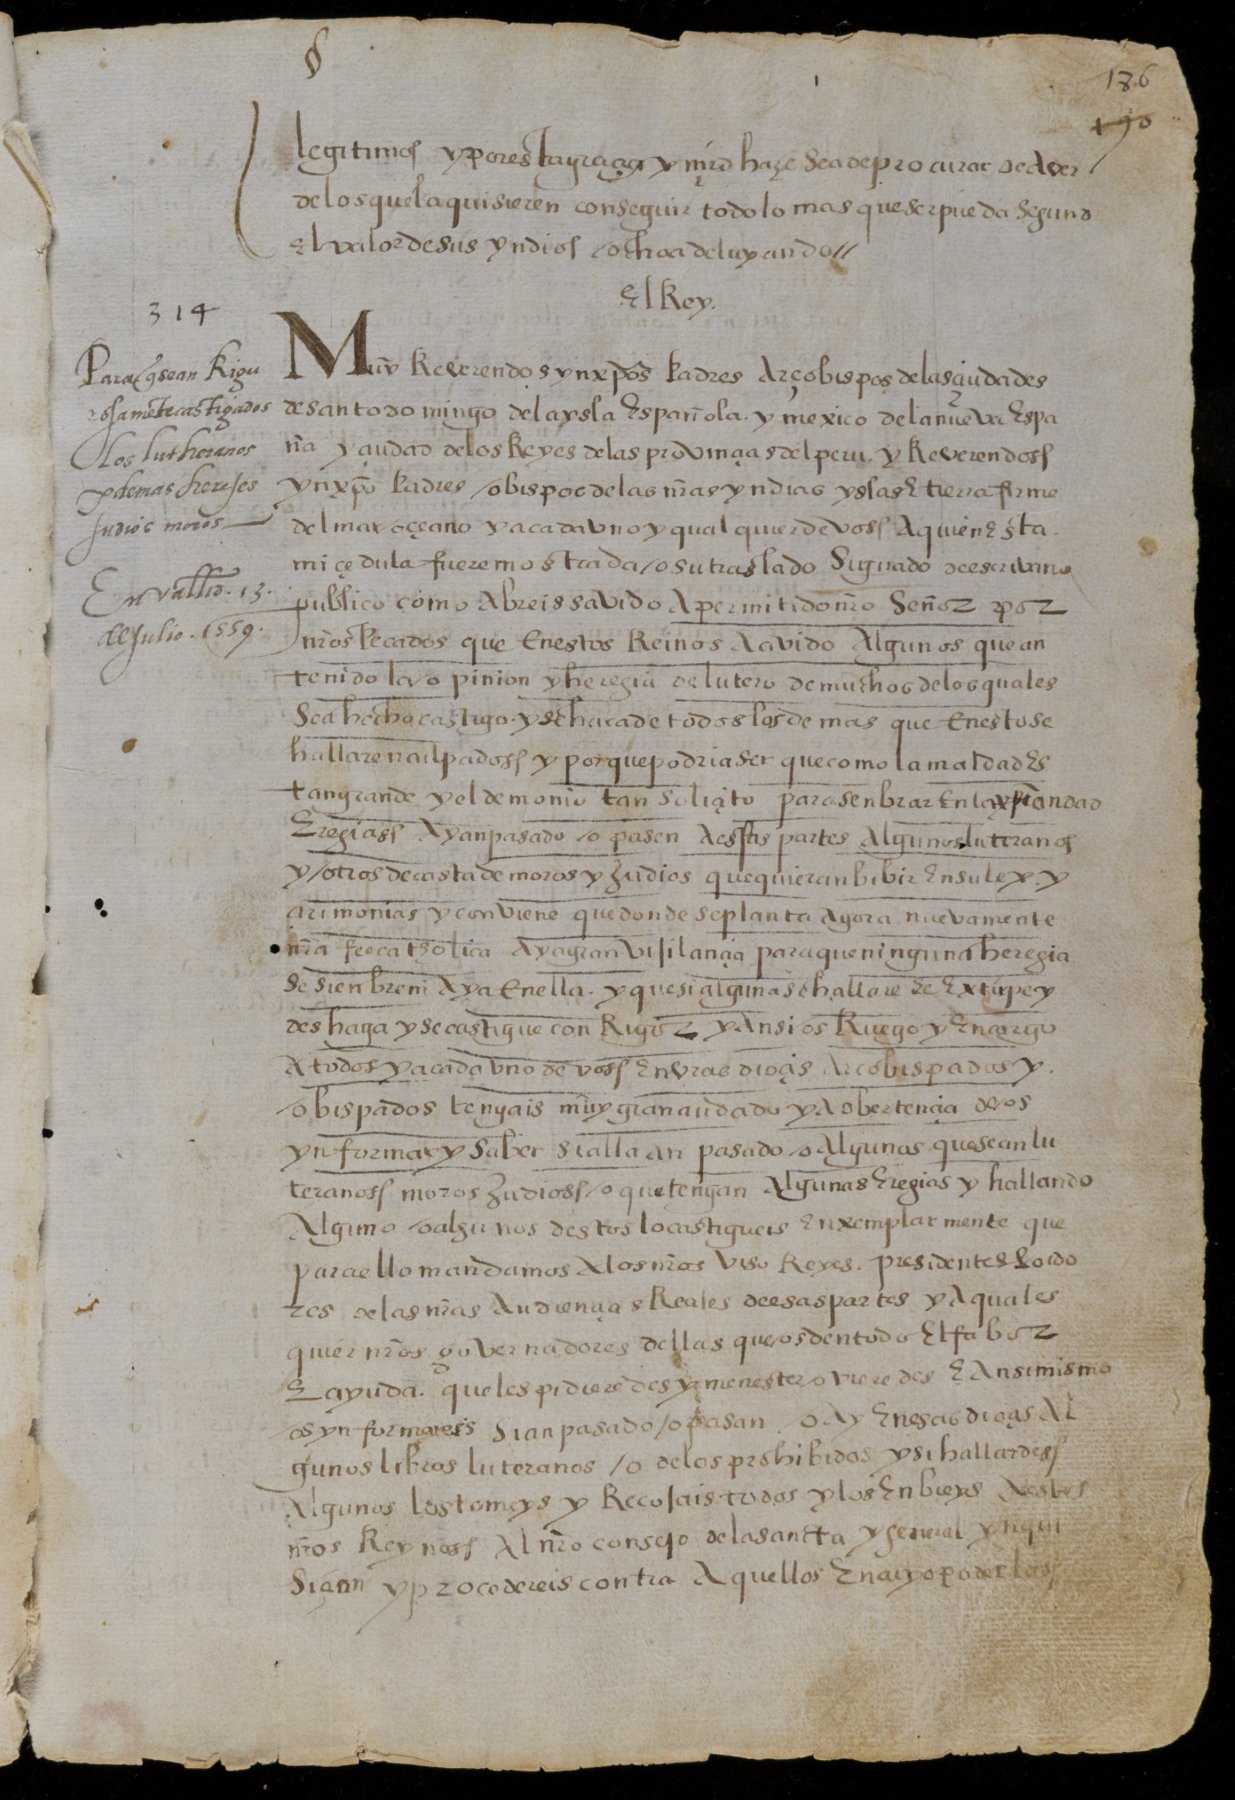 186
190
legitimos y por esta gracia y mrd haze se a de procurar de aver
de los que la quisieren conseguir todo lo mas que ser pueda segund
el valor de sus yndios / ochoa de luyando //
El Rey.
314
Para q sean Rigu
rosamēte castigados
los lutheranos
y demas herejes
Judios moros
En vallid. 13.
de Julio. 1559.
Muy Reverendos yn xpo padres Arçobispos de las çiudades
de santo domingo de la ysla Española. y mexico de la nueva Espa
ña y çiudad de los Reyes de las provinçias del peru. y Reverendoss
yn xpo padres obispos de las nras yndias yslas E tierra firme
del mar oçeano y a cada uno y qual quier de voss A quien Esta
mi çedula fuere mostrada / o su traslado Signado de escrivano
publico como Abreis savido A permitido nro Señor por
nros pecados que En estos Reinos A avido Algunos que an
tenido la opinion y heregia de lutero de muchos de los quales
Se a hecho castigo. y se hara de todos los demas que En esto se
hallaren culpadoss y porque podria ser que como la maldad Es
tan grande y el demonio tan soliçito para senbrar En la xpiandad
Eregiass Ayan pasado / o pasen A esas partes Algunos luteranos
y / otros de casta de moros y Judios que quieran bibir En su ley. y
cirimonias y conviene que donde se planta Agora nuevamente
nra fee catholica Aya gran vigilançia para que ninguna heregia
se sienbre ni Aya En ella. y que si alguna se hallare se Extirpe y
deshaga y se castigue con Rigor y Ansi os Ruego y Encargo
A todos y a cada uno de voss En vras dioçis Arcobispados y.
obispados tengais muy gran cuidado y Adbertençia de os
ynformar y saber si alla an pasado / o Algunos que sean lu
teranoss moros Judioss / o que tengan Algunas Eregias y hallando
Alguno / o algunos destos lo castigueis Enxemplarmente que
para ello mandamos A los nros viso Reyes. presidentes E oido
res de las nras Audiençias Reales de esas partes y A quales
quier nros governadores dellas que os den todo El fabor
E ayuda. que les pidieredes y menester ovieredes E Ansimismo
os ynformareis Si an pasado / o pasan / o Ay En esas dioçis Al
gunos libros luteranos / o de los prohibidos y si hallardess
Algunos los tomeys y Recojais todos y los Enbieys A estos
nros Reynoss Al nro consejo de la sancta y general ynqui
Siçion y procedereis contra Aquellos En cuyo poder los